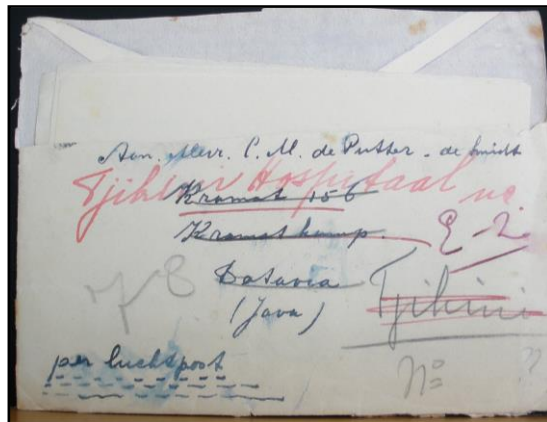 Aan. Mevr. C. M. de Putter - de Smidt
Tjikini Hospitaal
Kramat 156
Kramatkamp.
E-2
Batavia
(Java)
Tjikini
per luchtpost
No